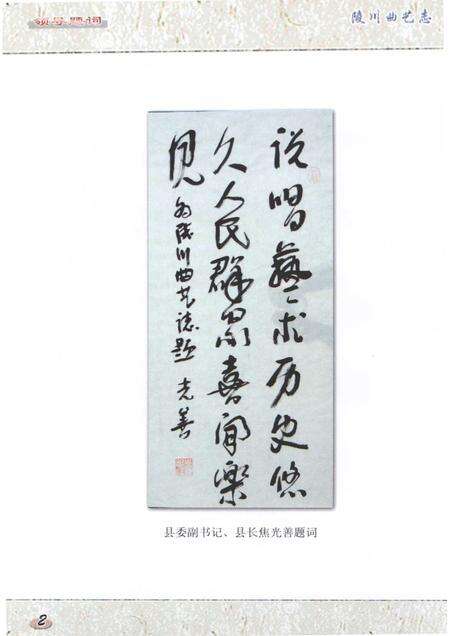 领导题词
陵川曲艺志
说唱藝术历史悠
久人民群众喜闻樂
见
为陵川曲艺志题 光善
县委副书记、县长焦光善题词
2